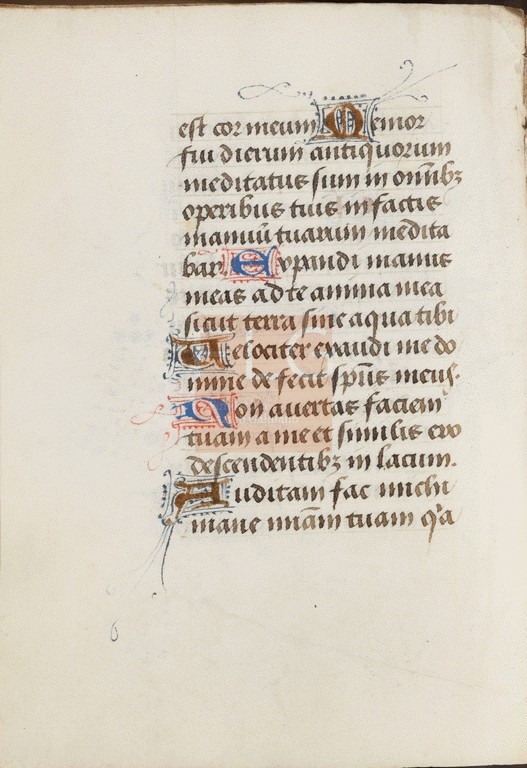 est cor meum Memor
fui dierum antiquorum
meditatus sum in omnibꝫ
operibus tuis in factis
manuū tuarum medita
bar. Expandi manus
meas ad te anima mea
sicut terra sine aqua tibi
Velociter exaudi me do
mine defecit sp̄us meus.
Non auertas faciem
tuam a me et similis ero
descendentibꝫ in lacum.
Auditam fac michi
mane mīam tuam q̓a